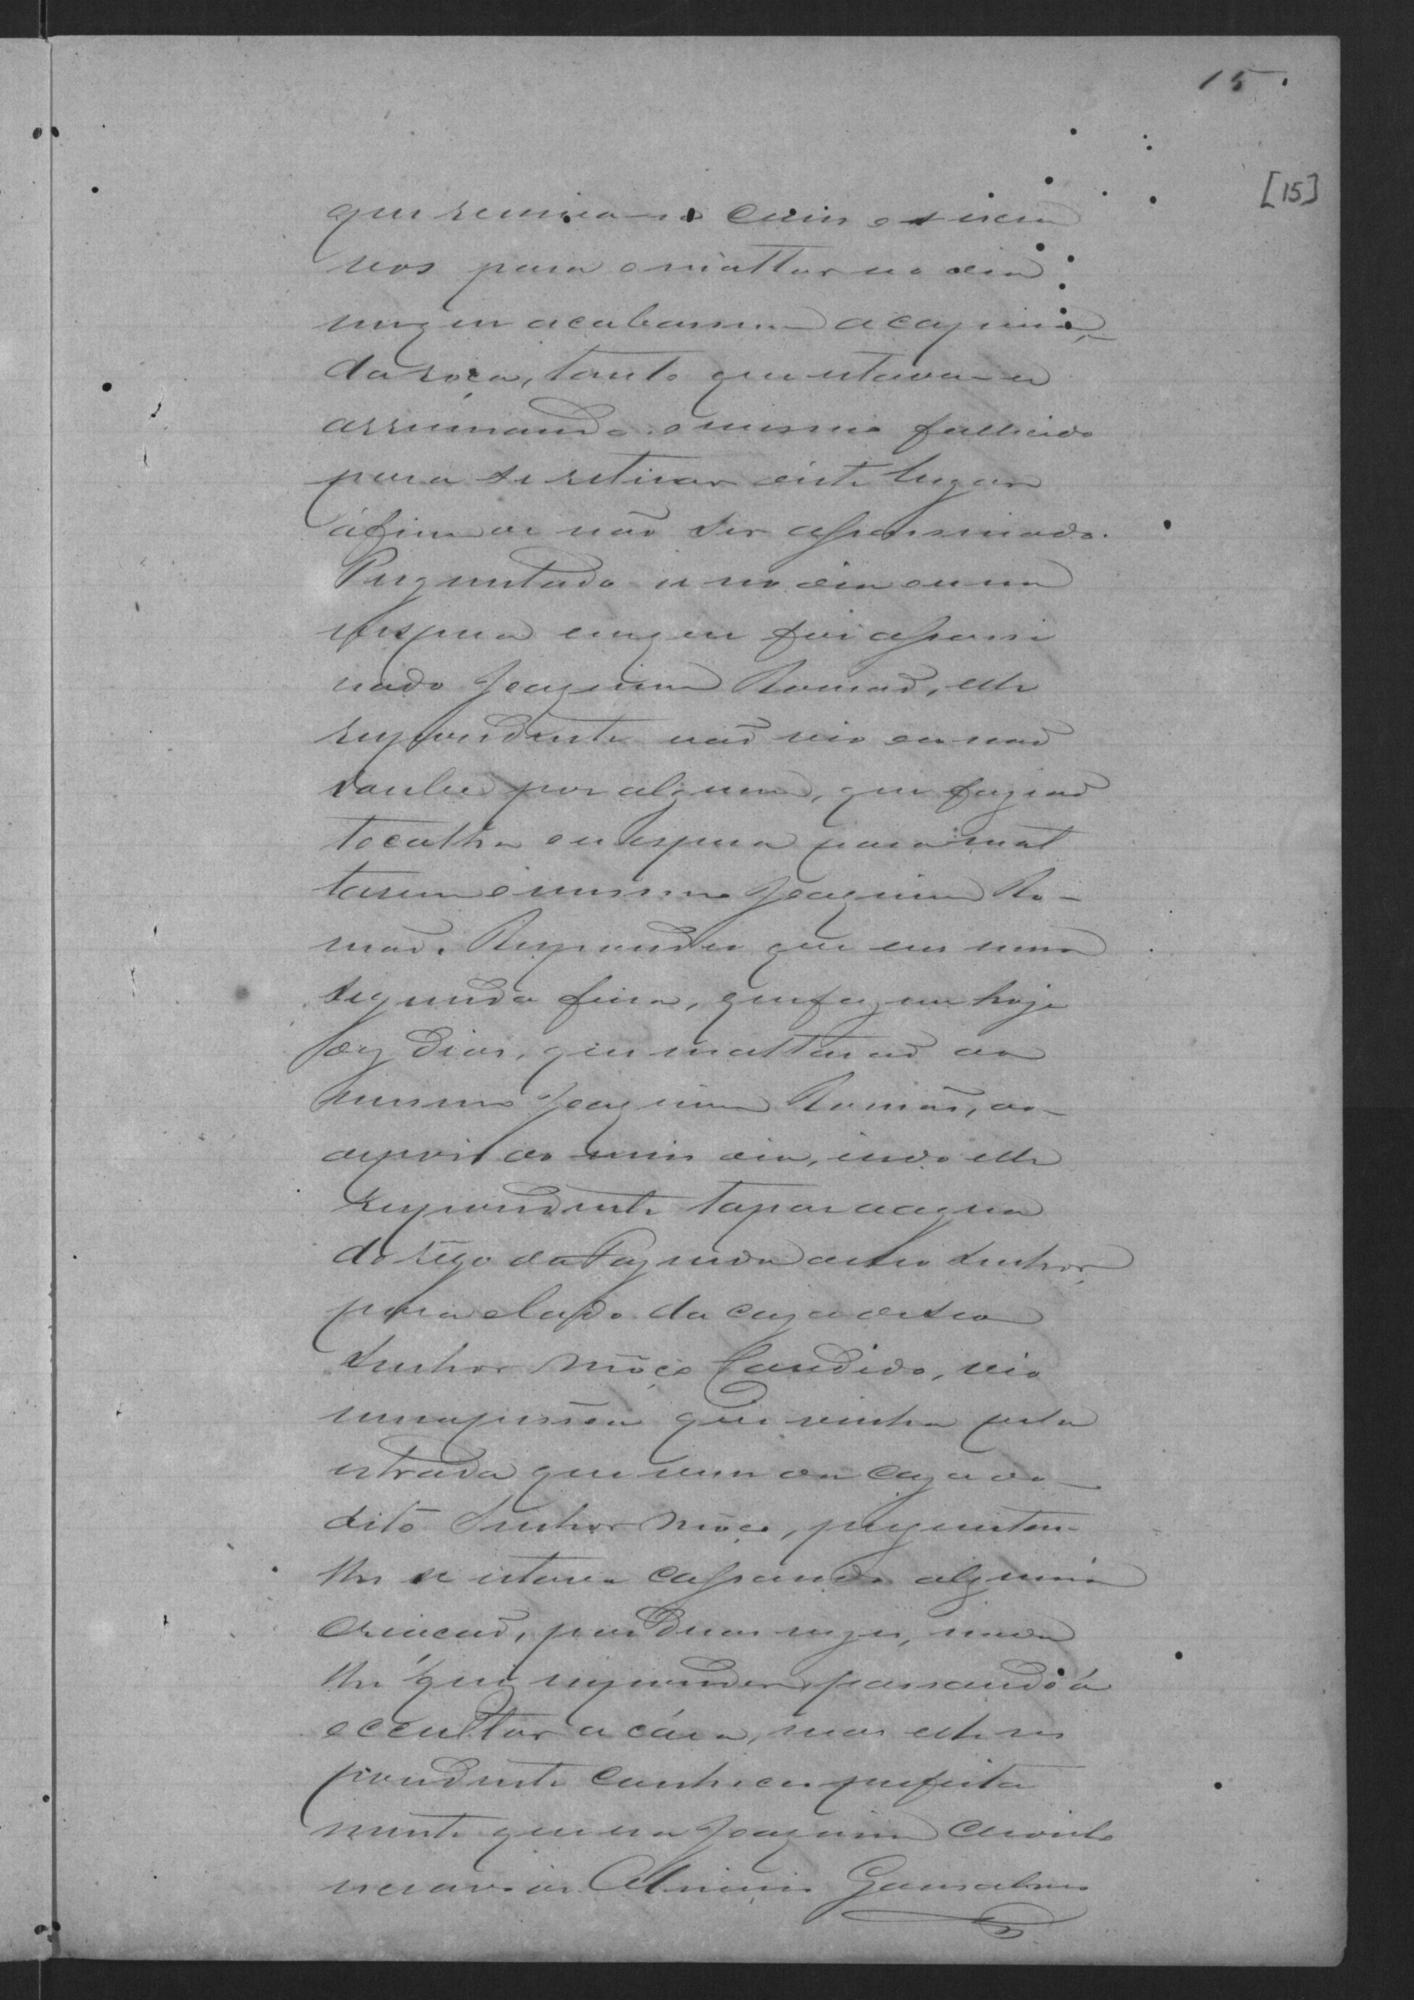 15.
[15]
que reunia-se com os escra
vos para o mattar no dia
em que acabassem a capina
da roça, tanto que estava-se
arrumando o mesmo fallecido
para se retirar deste lugar
áfim de não ser assassinado.
Perguntado se no dia ou na
vespera em que foi assassi
nado Joaquim Romaõ, elle
respondente naõ vio ou naõ
soube por alguem, que faziaõ
tocalha ou espera para mat
tarem o mesmo Joaquim Ro-
maõ. Respondeo que em uma
segunda feira, que faz um hoje
dez dias, que mattaraõ ao
mesmo Joaquim Romaõ, ao
depois do meio dia, indo elle
respondente tapar a agua
do rego da Fazenda de seo senhor
para o lado da caza de seo
senhor môço Candido, vio
uma pessôa que vinha pela
estrada que vem da caza do
dito Senhor môço, perguntou-
lhe se estava cassando alguma
criacaõ, por duas vezes, nada
lhe que respondeo, passando á
occultar a cára, mas elle res
pondente conheceo perfeita
mente que era Joaquim crioulo
escravo de Gonsalves